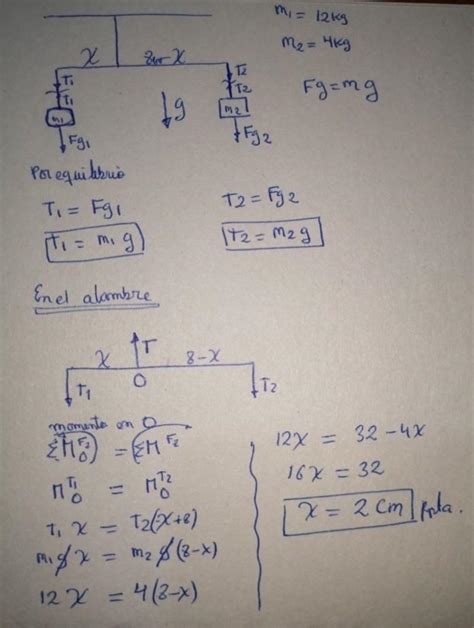 m₁ = 12kg
m₂ = 4kg
Fg = mg
x 8-x
T₁ T₂
T₁ T₂
m₁ g m₂
Fg₁ Fg₂
Por equilibrio
T₁ = Fg₁ T₂ = Fg₂
T₁ = m₁ g T₂ = m₂ g
En el alambre
x T 8-x
T₁ O T₂
momento en O
ΣM₀^F₂ = ΣM^F₂
M₀^T₁ = M₀^T₂
T₁ x = T₂(-x+8)
m₁ g x = m₂ g (8-x)
12 x = 4(8-x)
12x = 32 - 4x
16x = 32
x = 2 cm Rpta.